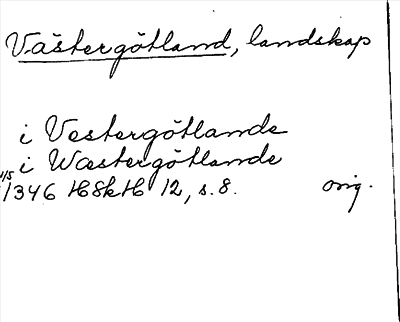 Västergötland, landskap
i Vestergötlande
i Wæstergötlande
1/5 1346 HSkH 12, s. 8. orig.